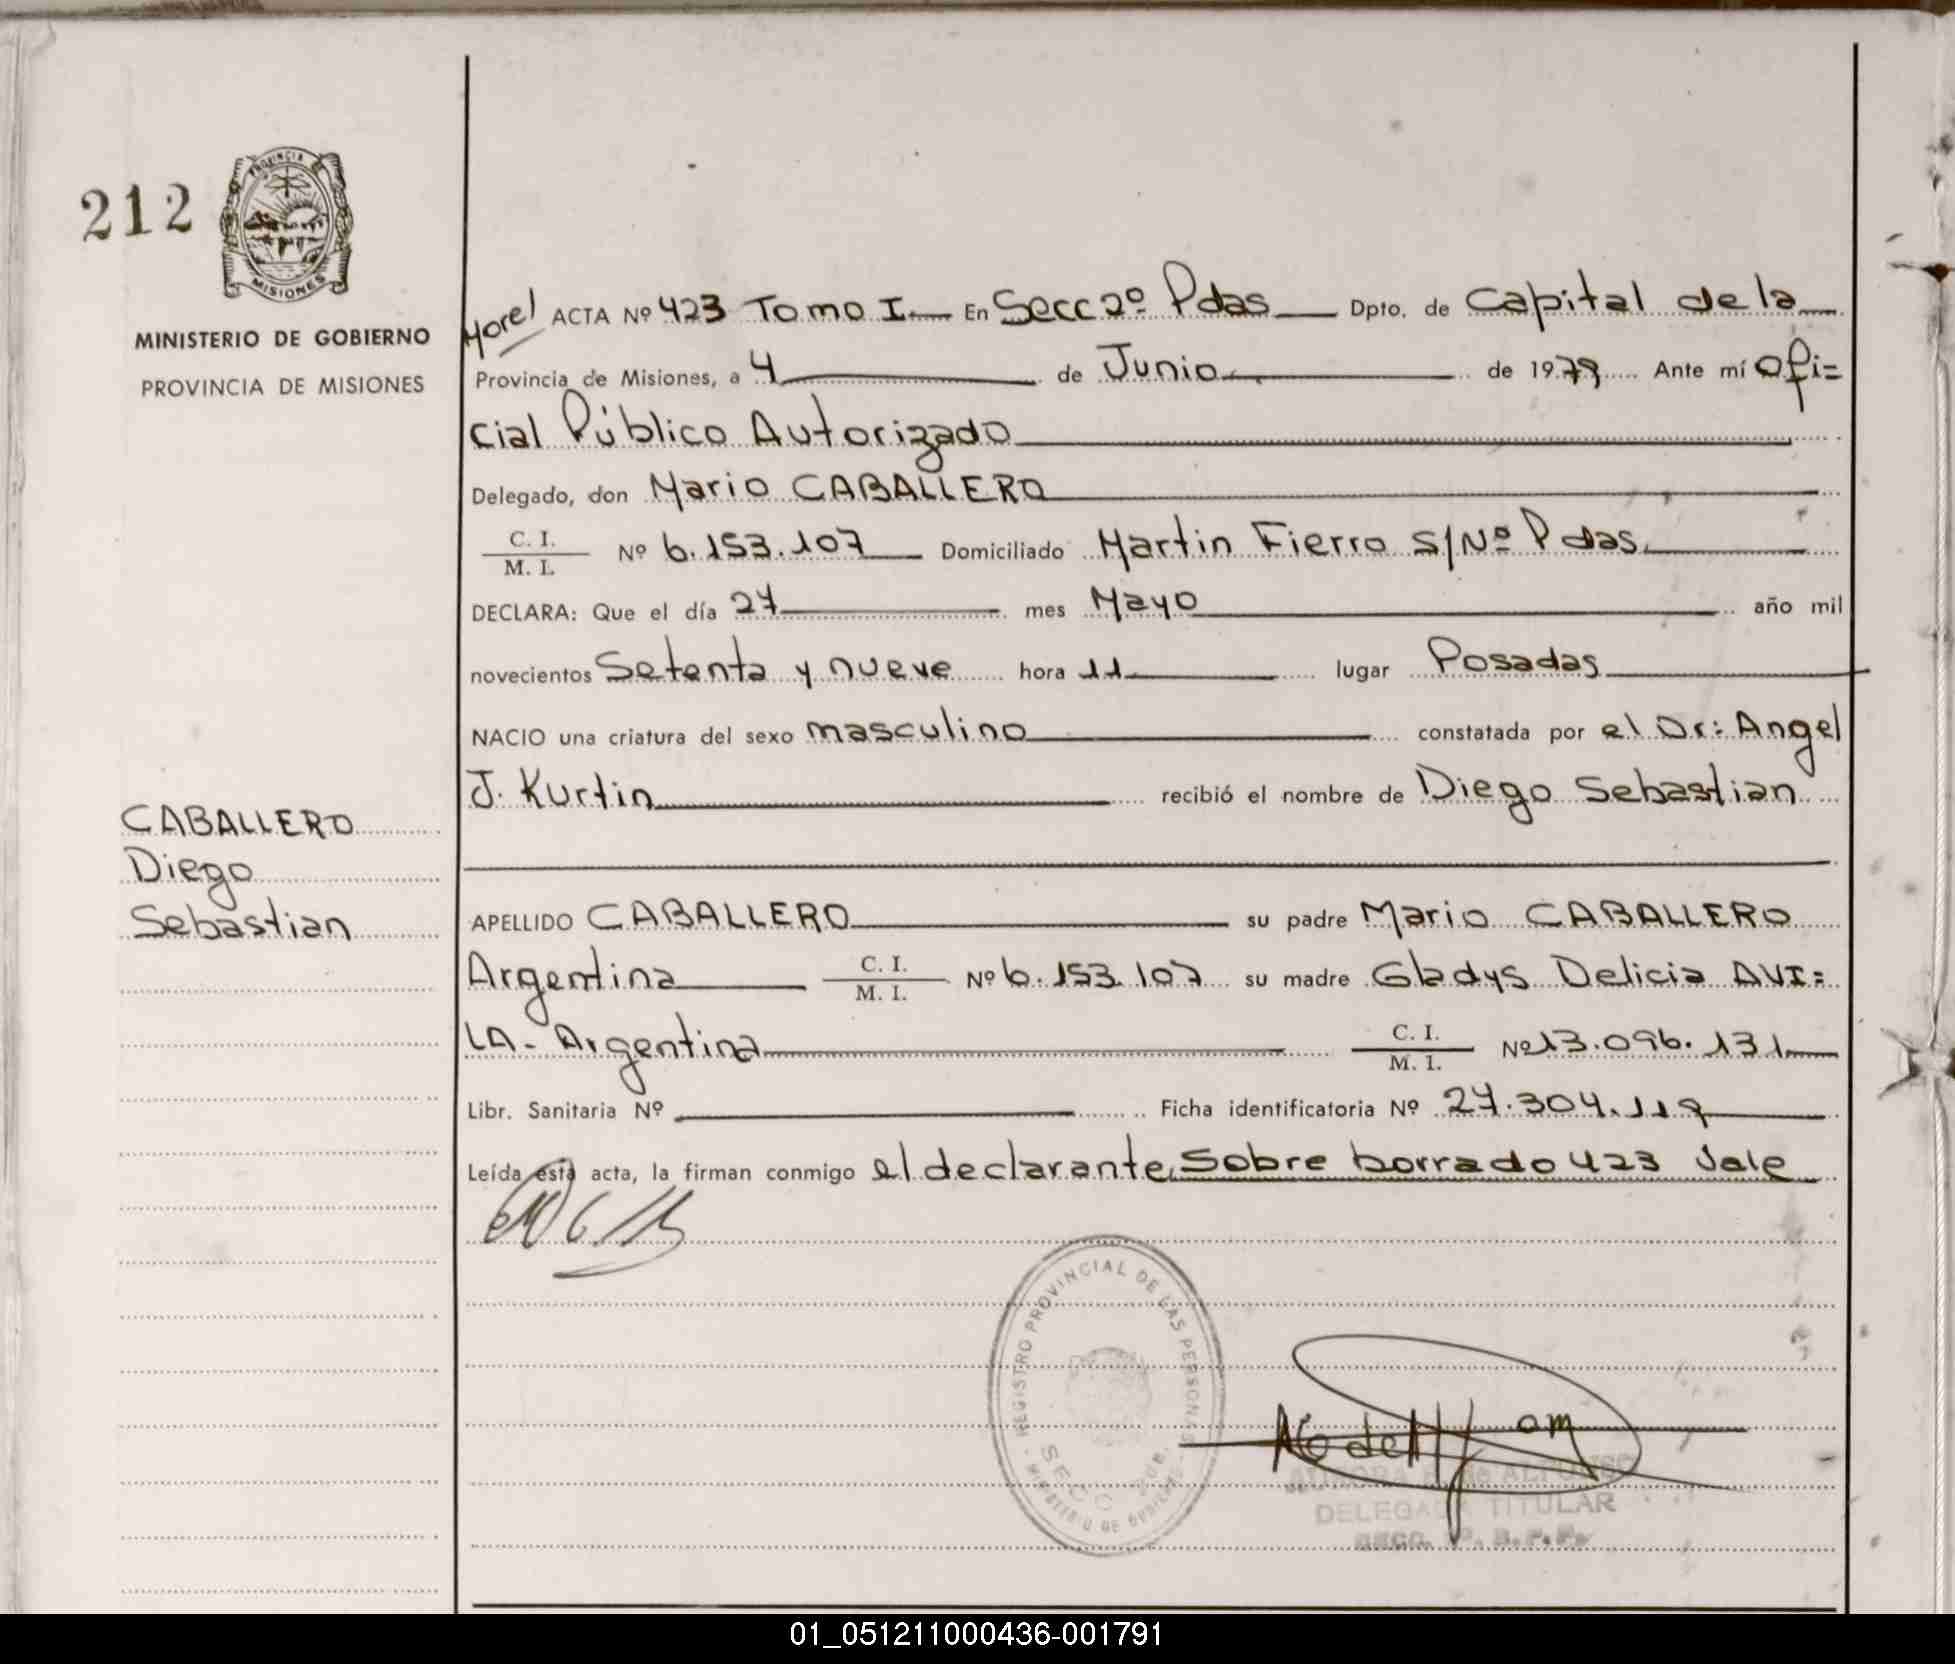 212
PROVINCIA
MISIONES
MINISTERIO DE GOBIERNO
PROVINCIA DE MISIONES
Morel ACTA Nº 423 Tomo I. En Secc 2º Pdas Dpto. de Capital de la
Provincia de Misiones, a 4 de Junio de 1979 Ante mí Ofi=
cial Público Autorizado
Delegado, don Mario CABALLERO
C. I.
M. I. Nº 6.153.107 Domiciliado Martin Fierro S/Nº Pdas.
DECLARA: Que el día 27 mes Mayo año mil
novecientos Setenta y nueve hora 11 lugar Posadas
NACIO una criatura del sexo masculino constatada por el Dr: Angel
J. Kurtin recibió el nombre de Diego Sebastian
CABALLERO
Diego
Sebastian
APELLIDO CABALLERO su padre Mario CABALLERO
Argentina C. I.
M. I. Nº 6.153.107 su madre Gladys Delicia AVI=
LA- Argentina C. I.
M. I. Nº 13.096.131
Libr. Sanitaria Nº Ficha identificatoria Nº 27.304.119
Leída esta acta, la firman conmigo el declarante, Sobre borrado 423 Vale
REGISTRO PROVINCIAL DE LAS PERSONAS
MINISTERIO DE GOBIERNO
SECC
DE ALFONSO
DELEGADA TITULAR
01_051211000436-001791